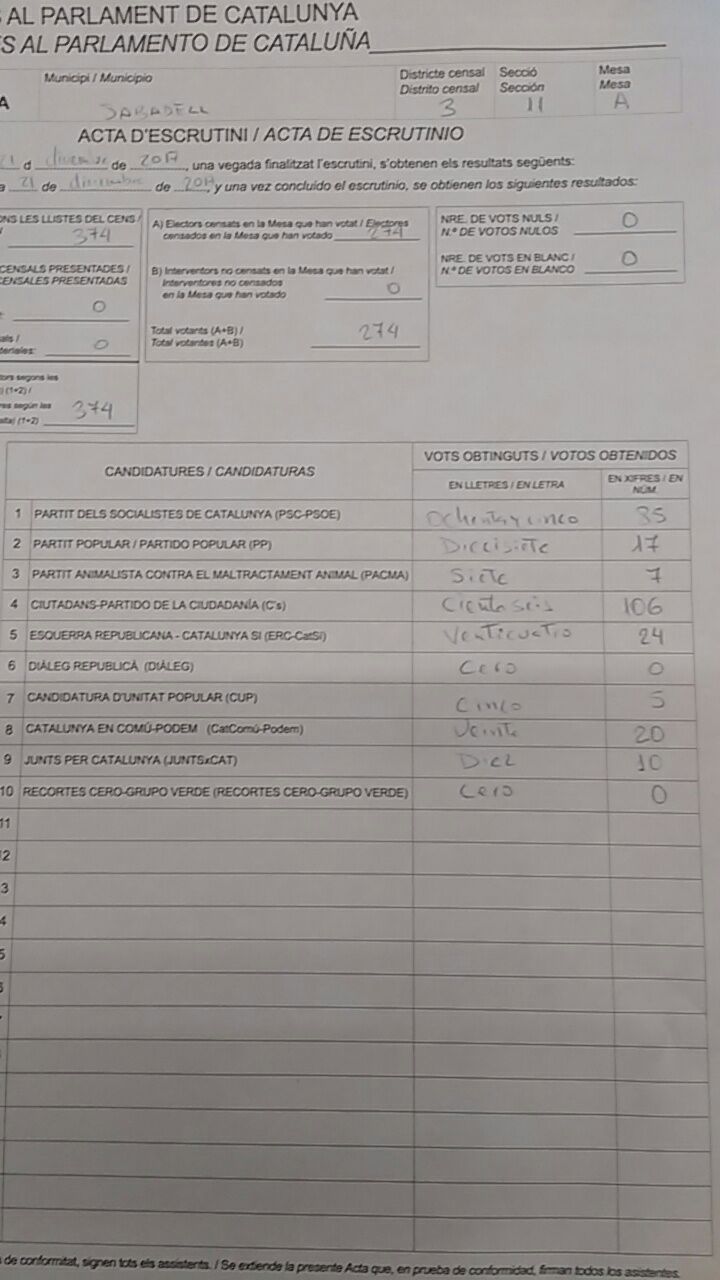 S AL PARLAMENT DE CATALUNYA
ES AL PARLAMENTO DE CATALUÑA
Municipi / Municipio
Districte censal
Distrito censal
Secció
Sección
Mesa
Mesa
A
SABADELL
3
11
A
ACTA D'ESCRUTINI / ACTA DE ESCRUTINIO
21 d diciembre de 2017, una vegada finalitzat l'escrutini, s'obtenen els resultats següents:
a 21 de diciembre de 2017, y una vez concluido el escrutinio, se obtienen los siguientes resultados:
ONS LES LLISTES DEL CENS /
374
CENSALS PRESENTADES /
CENSALES PRESENTADAS
0
als /
teriales: 0
tors segons les
) (1+2) /
res según las
alta) (1+2) 374
A) Electors censats en la Mesa que han votat / Electores
censados en la Mesa que han votado 274
B) Interventors no censats en la Mesa que han votat /
Interventores no censados
en la Mesa que han votado 0
Total votants (A+B) /
Total votantes (A+B) 274
NRE. DE VOTS NULS /
N.º DE VOTOS NULOS 0
NRE. DE VOTS EN BLANC /
N.º DE VOTOS EN BLANCO 0
CANDIDATURES / CANDIDATURAS
VOTS OBTINGUTS / VOTOS OBTENIDOS
EN LLETRES / EN LETRA
EN XIFRES / EN
NÚM.
1 PARTIT DELS SOCIALISTES DE CATALUNYA (PSC-PSOE) Ochenta y cinco 85
2 PARTIT POPULAR / PARTIDO POPULAR (PP) Diecisiete 17
3 PARTIT ANIMALISTA CONTRA EL MALTRACTAMENT ANIMAL (PACMA) Siete 7
4 CIUTADANS-PARTIDO DE LA CIUDADANÍA (C's) Ciento seis 106
5 ESQUERRA REPUBLICANA - CATALUNYA SI (ERC-CatSí) Venticuatro 24
6 DIÀLEG REPUBLICÀ (DIÀLEG) Cero 0
7 CANDIDATURA D'UNITAT POPULAR (CUP) Cinco 5
8 CATALUNYA EN COMÚ-PODEM (CatComú-Podem) Veinte 20
9 JUNTS PER CATALUNYA (JUNTSxCAT) Diez 10
10 RECORTES CERO-GRUPO VERDE (RECORTES CERO-GRUPO VERDE) Cero 0
11
2
3
4
5
de conformitat, signen tots els assistents. / Se extiende la presente Acta que, en prueba de conformidad, firman todos los asistentes.